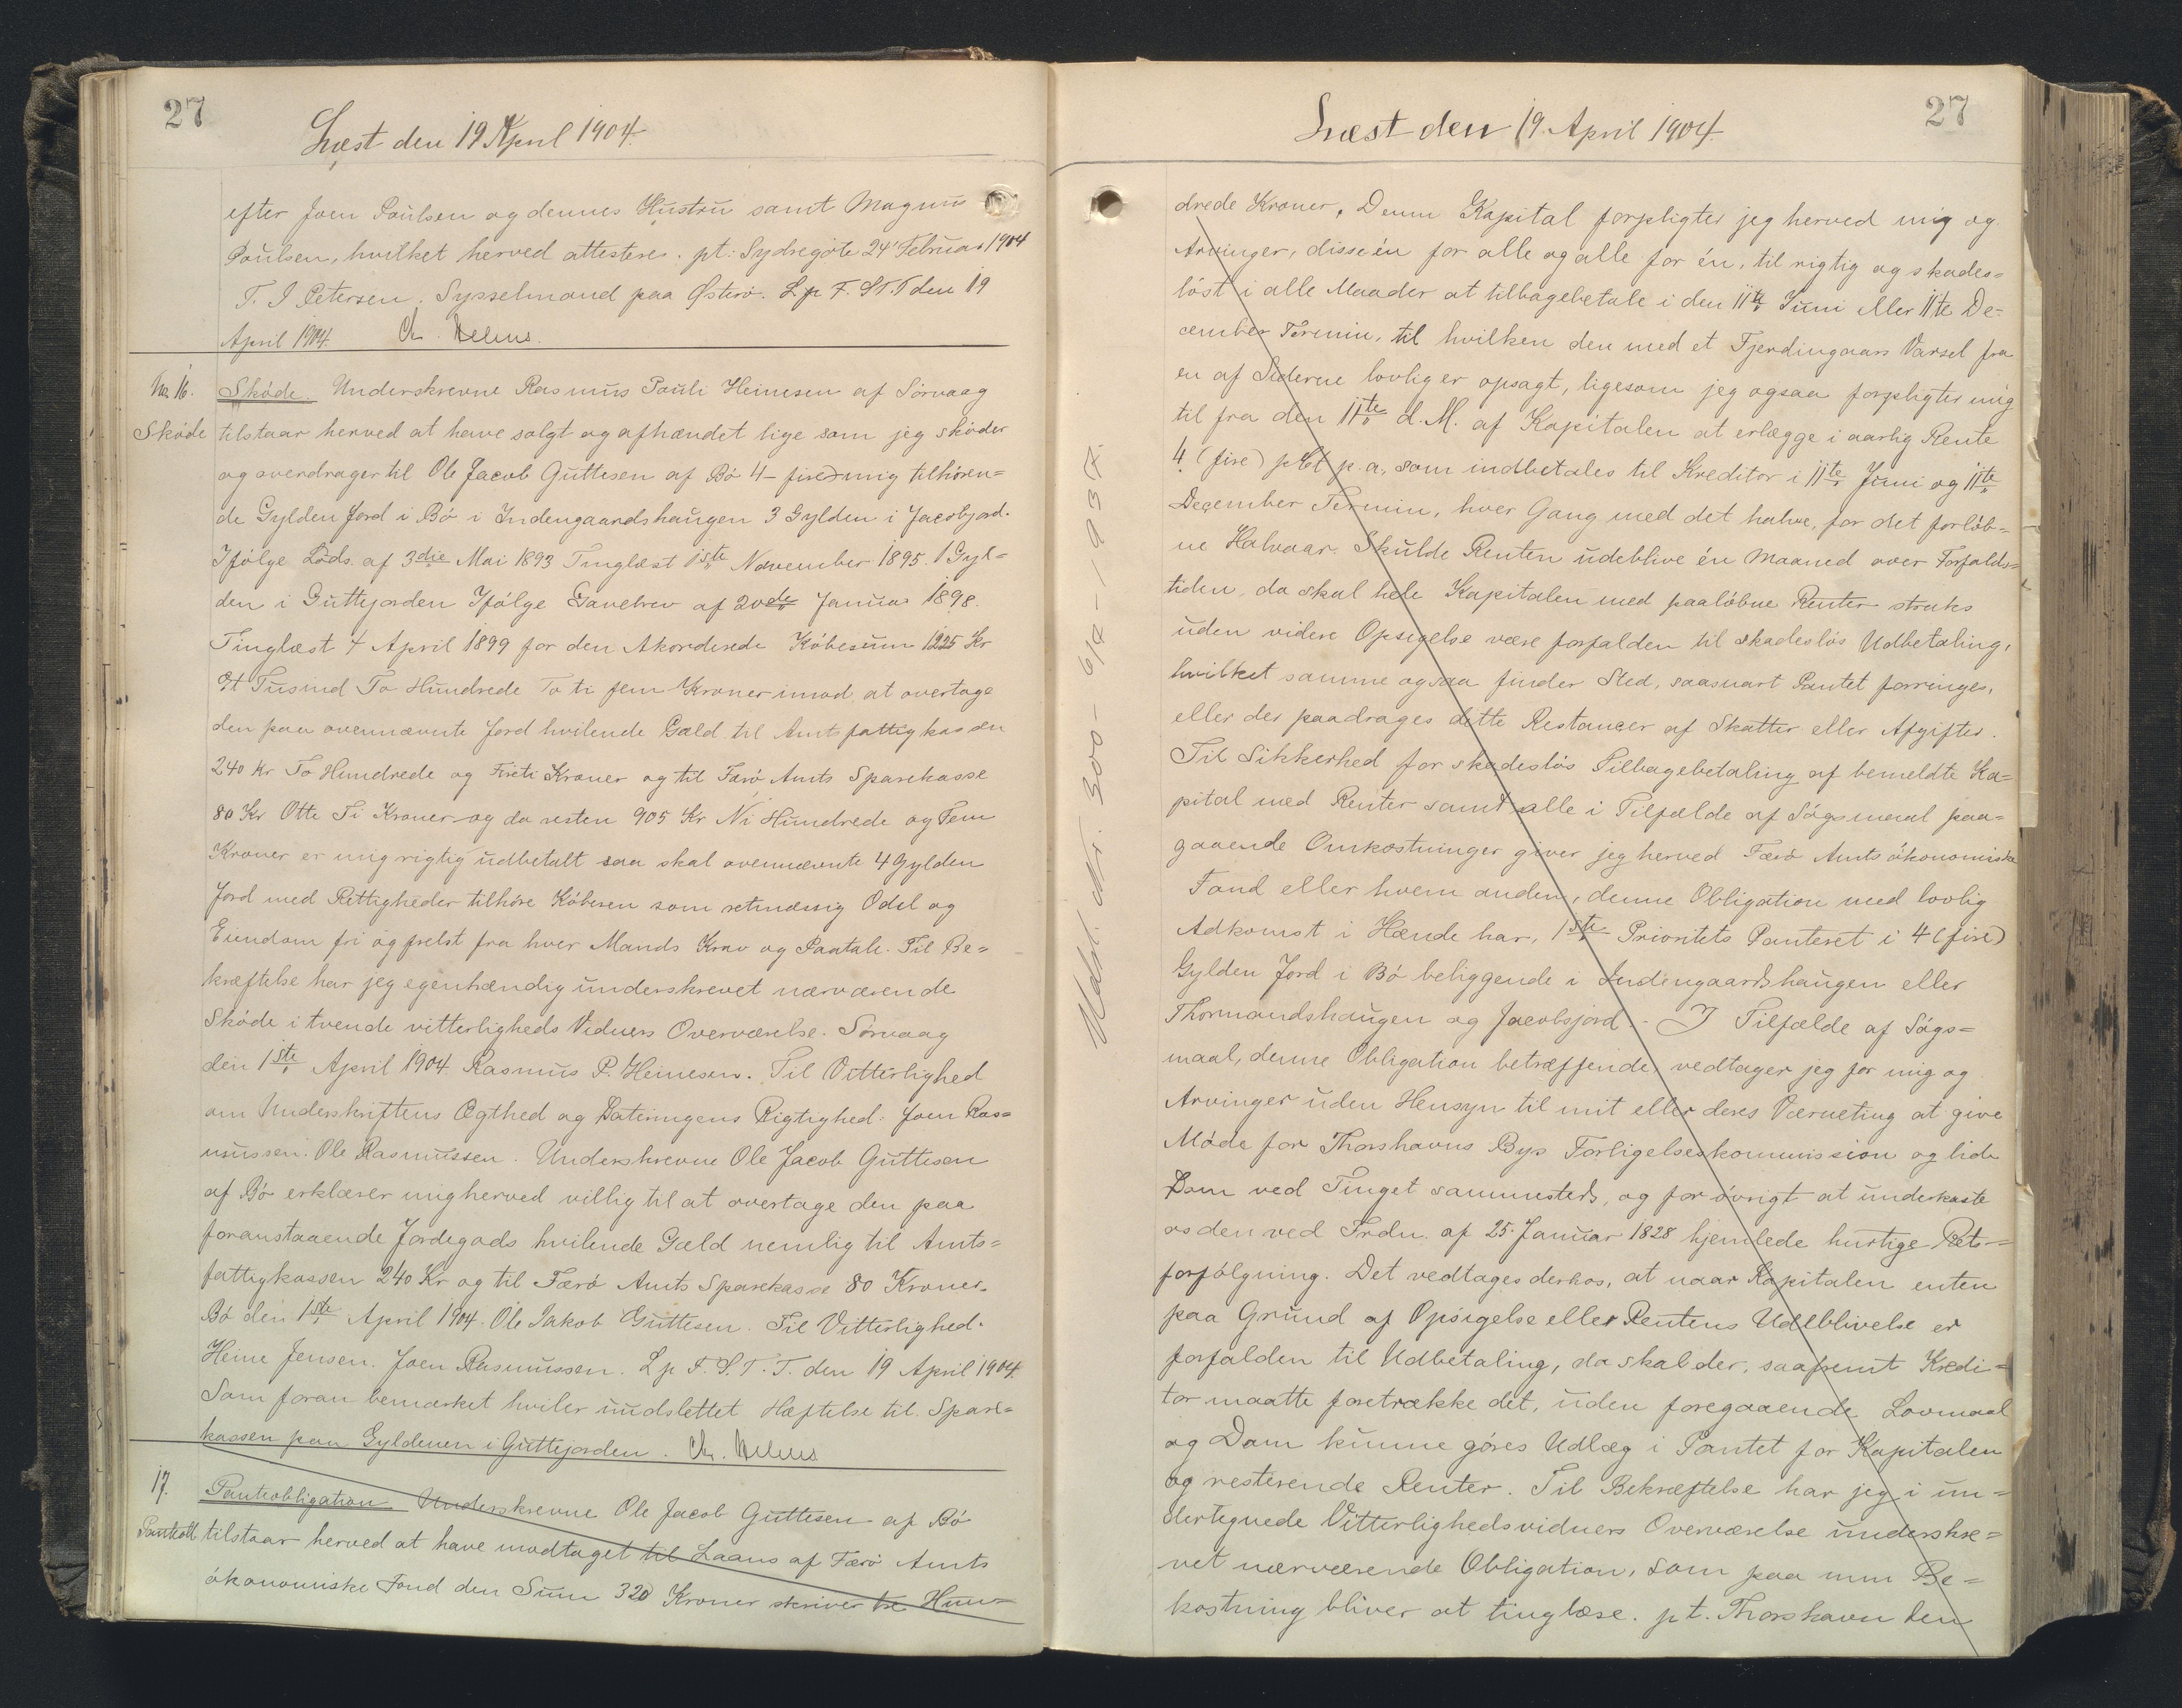 27
Læst den 19 April 1904.
efter Joen Poulsen og dennes Hustru samt Magnus
Poulsen, hvilket herved attesteres. pt: Sydregöte 24' Februar 1904
T. J Petersen. Sysselmand paa Østerö. L p F. S T. T den 19
April 1904.
No 16.
Sköde
Sköde. Underskrevne Rasmus Pauli Heinesen af Sörvaag
tilstaar herved at have solgt og afhændet lige som jeg sköder
og overdrager til Ole Jacob Guttesen af Bö 4 - fire mig tilhören=
de Gylden Jord i Bö i Indengaardshaugen 3 Gylden i Jacobsjord.
Ifölge Löds. af 3die Mai 1893 Tinglæst 1ste November 1895. 1 Gyl=
den i Guttejorden Ifölge Gavebrev af 20de Januar 1898.
Tinglæst 4 April 1899 for den Akorderede Köbesum 1225 Kr
Et Tusind To Hundrede To ti fem Kroner imod at overtage
den paa ovennævnte Jord hvilende Gæld til Amtsfattigkassen
240 Kr To Hundrede og Fireti Kroner og til Færö Amts Sparekasse
80 Kr Otte Ti Kroner og da resten 905 Kr Ni Hundrede og Fem
Kroner er mig rigtig udbetalt saa skal ovennævnte 4 Gylden
Jord med Rettigheder tilhöre Köberen som retmæssig Odel og
Eiendom fri og frelst fra hver Mands Krav og Paatale. Til Be=
kræftelse har jeg egenhændig underskrevet nærværende
Sköde i tvende vitterligheds Vidners Overværelse. Sörvaag
den 1ste April 1904 Rasmus P. Heinesen. Til Vitterlighed
om Underskriftens Ægthed og Dateringens Rigtighed: Joen Ras=
mussen. Ole Rasmussen. Underskrevne Ole Jacob Guttesen
af Bö erklærer mig herved villig til at overtage den paa
foranstaaende Jordegods hvilende Gæld nemlig til Amts=
fattigkassen 240 Kr og til Færö Amts Sparekasse 80 Kroner.
Bö den 1ste April 1904. Ole Jakob Guttesen. Til Vitterlighed.
Heine Jensen. Joen Rasmussen. L p F. S. T. T. den 19 April 1904.
Som foran bemærket hviler uudslettet Hæftelse til Spare=
kassen paa Gyldenen i Guttejorden.
17.
Panteobl
Panteobligation Underskrevne Ole Jacob Guttesen af Bö
tilstaar herved at have modtaget til Laans af Færö Amts
ökonomiske Fond den Sum 320 Kroner skriver tre Hun=
27
Læst den 19. April 1904.
drede Kroner. Denne Kapital forpligter jeg herved mig og
Arvinger, disse én for alle og alle for én, til rigtig og skades=
löst i alle Maader at tilbagebetale i den 11te Juni eller 11te De=
cember Termin, til hvilken den med et Fjerdingaars Varsel fra
en af Siderne lovlig er opsagt, ligesom jeg ogsaa forpligter mig
til fra den 11te d. M. af Kapitalen at erlægge i aarlig Rente
4 (fire) pCt p. a, som indbetales til Kreditor i 11te Juni og 11te
December Termin, hver Gang med det halve, for det forlöb=
ne Halvaar. Skulde Renten udeblive én Maaned over Forfalds=
tiden, da skal hele Kapitalen med paalöbne Renter straks
uden videre Opsigelse være forfalden til skadeslös Udbetaling,
hvilket samme ogsaa finder Sted, saasnart Pantet forringes,
eller der paadrages dette Restancer af Skatter eller Afgifter.
Til Sikkerhed for skadeslös Tilbagebetaling af bemeldte Ka=
pital med Renter samt alle i Tilfælde af Sögsmaal paa=
gaaende Omkostninger giver jeg herved Færö Amts ökonomiske
Fond eller hvem anden, denne Obligation med lovlig
Adkomst i Hænde har, 1ste Prioritets Panteret i 4 (fire)
Gylden Jord i Bö beliggende i Indengaardshaugen eller
Thormandshaugen og Jacobsjord. - I Tilfælde af Sögs=
maal, denne Obligation betræffende, vedtager jeg for mig og
Arvinger uden Hensyn til mit eller deres Værneting at give
Möde for Thorshavns Bys Forligelseskommission og lide
Dom ved Tinget sammesteds, og for övrigt at underkaste
os den ved Frdn. af 25. Januar 1828 hjemlede hurtige Rets=
forfölgning. Det vedtages derhos, at naar Kapitalen enten
paa Grund af Opsigelse eller Rentens Udeblivelse er
forfalden til Udbetaling, da skal der, saafremt Kredi=
tor maatte foretrække det, uden foregaaende Lovmaal
og Dom kunne göres Udlæg i Pantet for Kapitalen
og resterende Renter. Til Bekræftelse har jeg i un=
dertegnede Vitterlighedsvidners Overværelse underskre=
vet nærværende Obligation, som paa min Be=
kostning bliver at tinglæse. pt. Thorshavn den